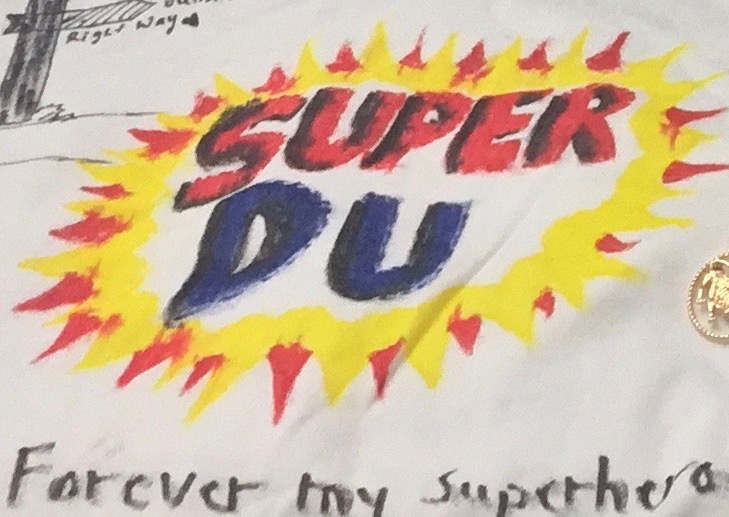 Right Way
SUPER
DU
Forever my superhero